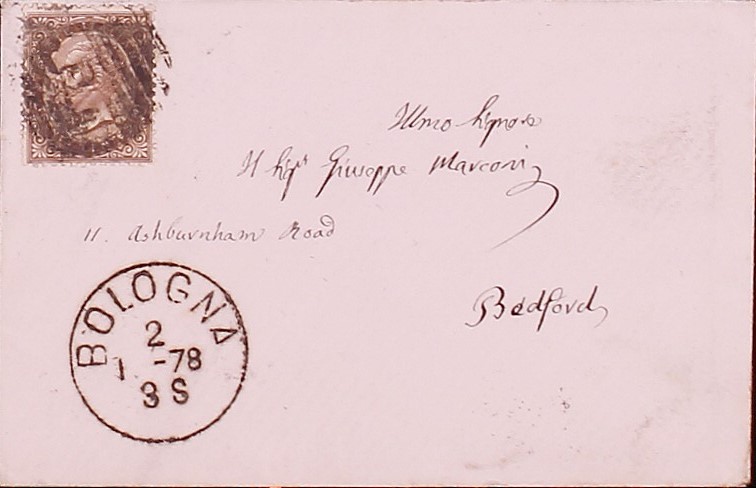 Illmo Signore
Il Sigr Giuseppe Marconi
11. Ashburnham Road
Bedford
BOLOGNA
2
1 -78
3 S